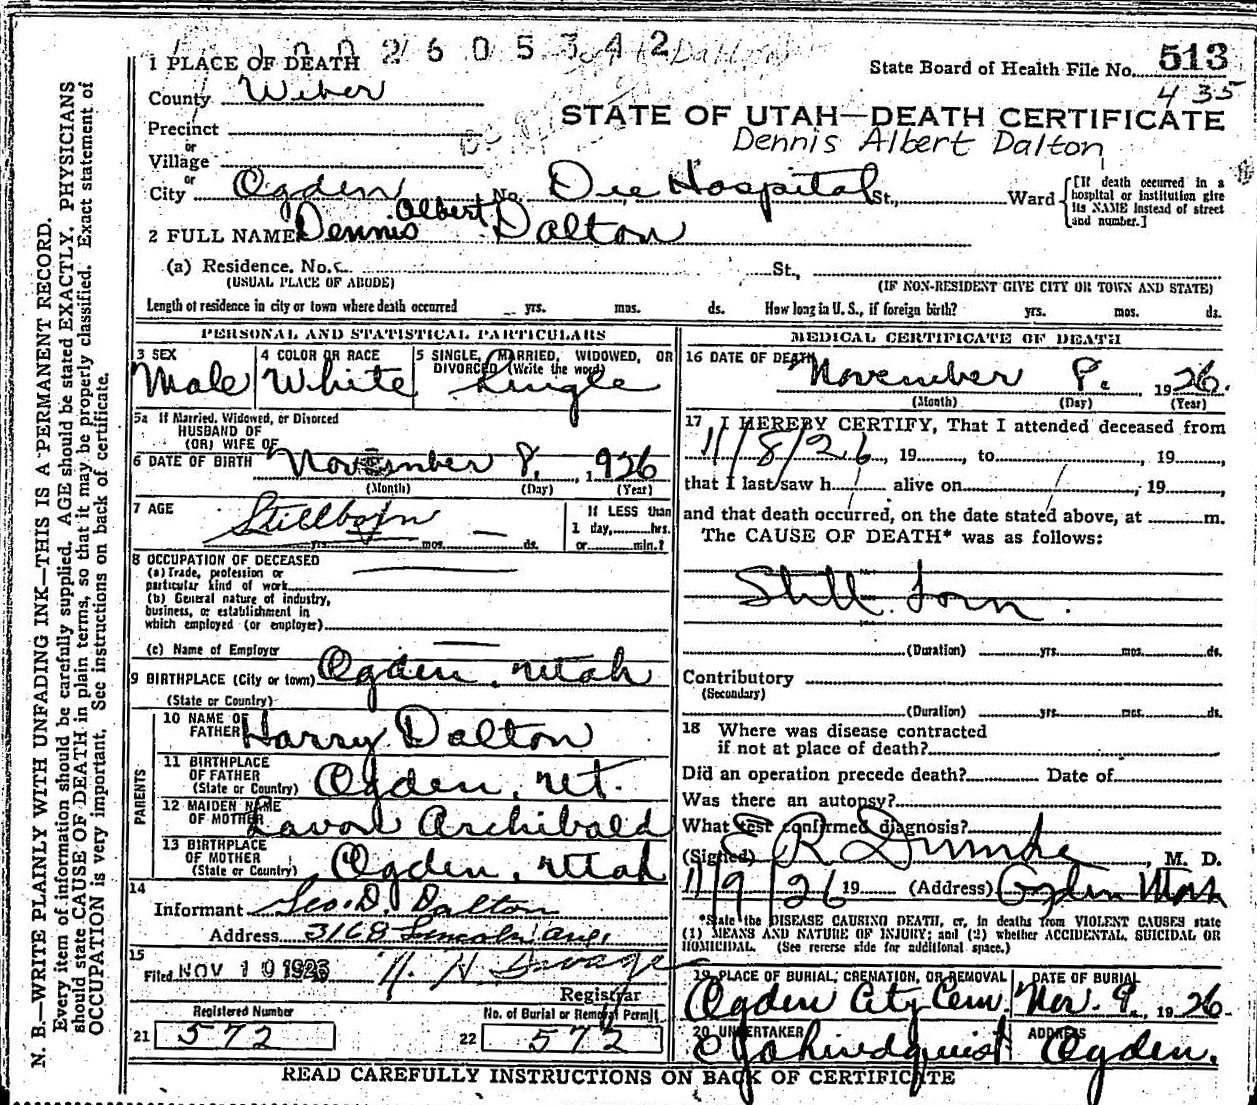 1 0 0 2 6 0 5 3 4 2 Dalton
1 PLACE OF DEATH
State Board of Health File No. 513
435
County Weber
STATE OF UTAH—DEATH CERTIFICATE
Precinct
Dennis Albert Dalton
or
Village
or
City Ogden No. Dee Hospital St., Ward [If death occurred in a hospital or institution give its NAME instead of street and number.]
Albert
2 FULL NAME Dennis Dalton
(a) Residence. No. St.,
(USUAL PLACE OF ABODE) (IF NON-RESIDENT GIVE CITY OR TOWN AND STATE)
Length of residence in city or town where death occurred yrs. mos. ds. How long in U. S., if foreign birth? yrs. mos. ds.
PERSONAL AND STATISTICAL PARTICULARS
3 SEX
Male
4 COLOR OR RACE
White
5 SINGLE, MARRIED, WIDOWED, OR
DIVORCED (Write the word)
Single
5a If Married, Widowed, or Divorced
HUSBAND OF
(OR) WIFE OF
6 DATE OF BIRTH November 8, 1926
(Month) (Day) (Year)
7 AGE
Stillborn
yrs. mos. ds.
If LESS than
1 day, hrs.
or min.?
8 OCCUPATION OF DECEASED
(a) Trade, profession or
particular kind of work
(b) General nature of industry,
business, or establishment in
which employed (or employer)
(c) Name of Employer
9 BIRTHPLACE (City or town) Ogden, Utah
(State or Country)
PARENTS
10 NAME OF
FATHER Harry Dalton
11 BIRTHPLACE
OF FATHER
(State or Country) Ogden, Ut.
12 MAIDEN NAME
OF MOTHER Lavon Archibald
13 BIRTHPLACE
OF MOTHER
(State or Country) Ogden, Utah
14
Informant Geo. D. Dalton
Address 3168 Lincoln Ave.
15
Filed NOV 10 1926 Savage
Registrar
Registered Number
21 572
No. of Burial or Removal Permit
22 572
MEDICAL CERTIFICATE OF DEATH
16 DATE OF DEATH
November 8. 1926.
(Month) (Day) (Year)
17 I HEREBY CERTIFY, That I attended deceased from
11/8/26, 19, to, 19,
that I last saw h alive on, 19,
and that death occurred, on the date stated above, at m.
The CAUSE OF DEATH* was as follows:
Still born.
(Duration) yrs. mos. ds.
Contributory
(Secondary)
(Duration) yrs. mos. ds.
18 Where was disease contracted
if not at place of death?
Did an operation precede death? Date of
Was there an autopsy?
What test confirmed diagnosis?
(Signed) E R Dumke, M. D.
11/9/26 19 (Address) Ogden Utah
*State the DISEASE CAUSING DEATH, or, in deaths from VIOLENT CAUSES state
(1) MEANS AND NATURE OF INJURY; and (2) whether ACCIDENTAL, SUICIDAL OR
HOMICIDAL. (See reverse side for additional space.)
19 PLACE OF BURIAL, CREMATION, OR REMOVAL
Ogden City Cem.
DATE OF BURIAL
Nov. 9, 1926.
20 UNDERTAKER
Lindquist
ADDRESS
Ogden.
READ CAREFULLY INSTRUCTIONS ON BACK OF CERTIFICATE
N. B.—WRITE PLAINLY WITH UNFADING INK—THIS IS A PERMANENT RECORD.
Every item of information should be carefully supplied. AGE should be stated EXACTLY. PHYSICIANS
should state CAUSE OF DEATH in plain terms, so that it may be properly classified. Exact statement of
OCCUPATION is very important. See instructions on back of certificate.